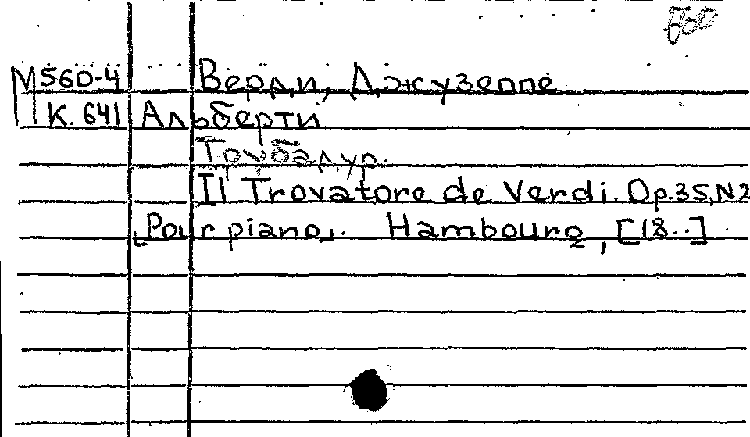 М560-4 Верди, Джузеппе
К. 641 Альберти
Трубадур.
Il Trovatore de Verdi. Op.35, N2
Pour piano. Hambourg, [18..]